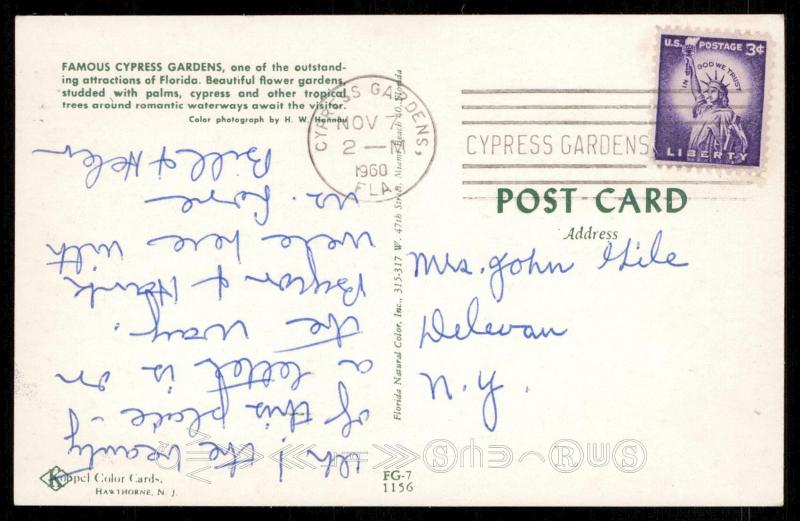 FAMOUS CYPRESS GARDENS, one of the outstand-
ing attractions of Florida. Beautiful flower gardens,
studded with palms, cypress and other tropical
trees around romantic waterways await the visitor.
Color photograph by H. W. Hannau
CYPRESS GARDENS,
NOV 7
2 – M
1960
FLA
CYPRESS GARDENS
U.S. POSTAGE 3¢
IN GOD WE TRUST
LIBERTY
POST CARD
Address
Mrs. John
Delevan
N.Y.
Oh! the beauty
of this place –
a letter is on
the way.
Byron & Hank
were here with
us. Love
Bill & Helen
Florida Natural Color, Inc., 315-317 W. 47th Street, Miami Beach 40, Florida
Koppel Color Cards.
HAWTHORNE, N. J.
FG-7
1156